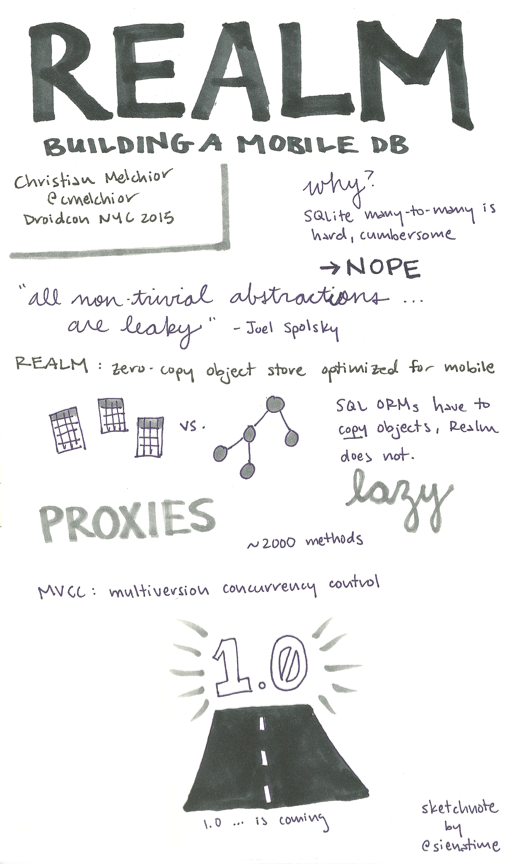 REALM
BUILDING A MOBILE DB
Christian Melchior
@cmelchior
Droidcon NYC 2015
why?
SQLite many-to-many is
hard, cumbersome
→ NOPE
"all non-trivial abstractions ...
are leaky" - Joel Spolsky
REALM : zero-copy object store optimized for mobile
vs.
SQL ORMs have to
copy objects, Realm
does not.
lazy
PROXIES
~2000 methods
MVCC : multiversion concurrency control
1.0
1.0 ... is coming
sketchnote
by
@sienatime